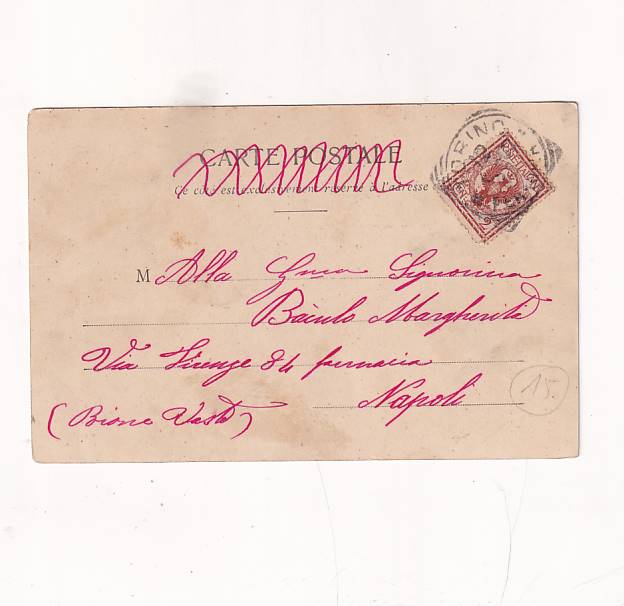 CARTE POSTALE
Ce côté est exclusivement réservé à l'adresse
TORINO
M Alla Gma Signorina
Bàculo Margherita
Via Firenze 84 farmacia
Napoli
(Rione Vasto)
15.